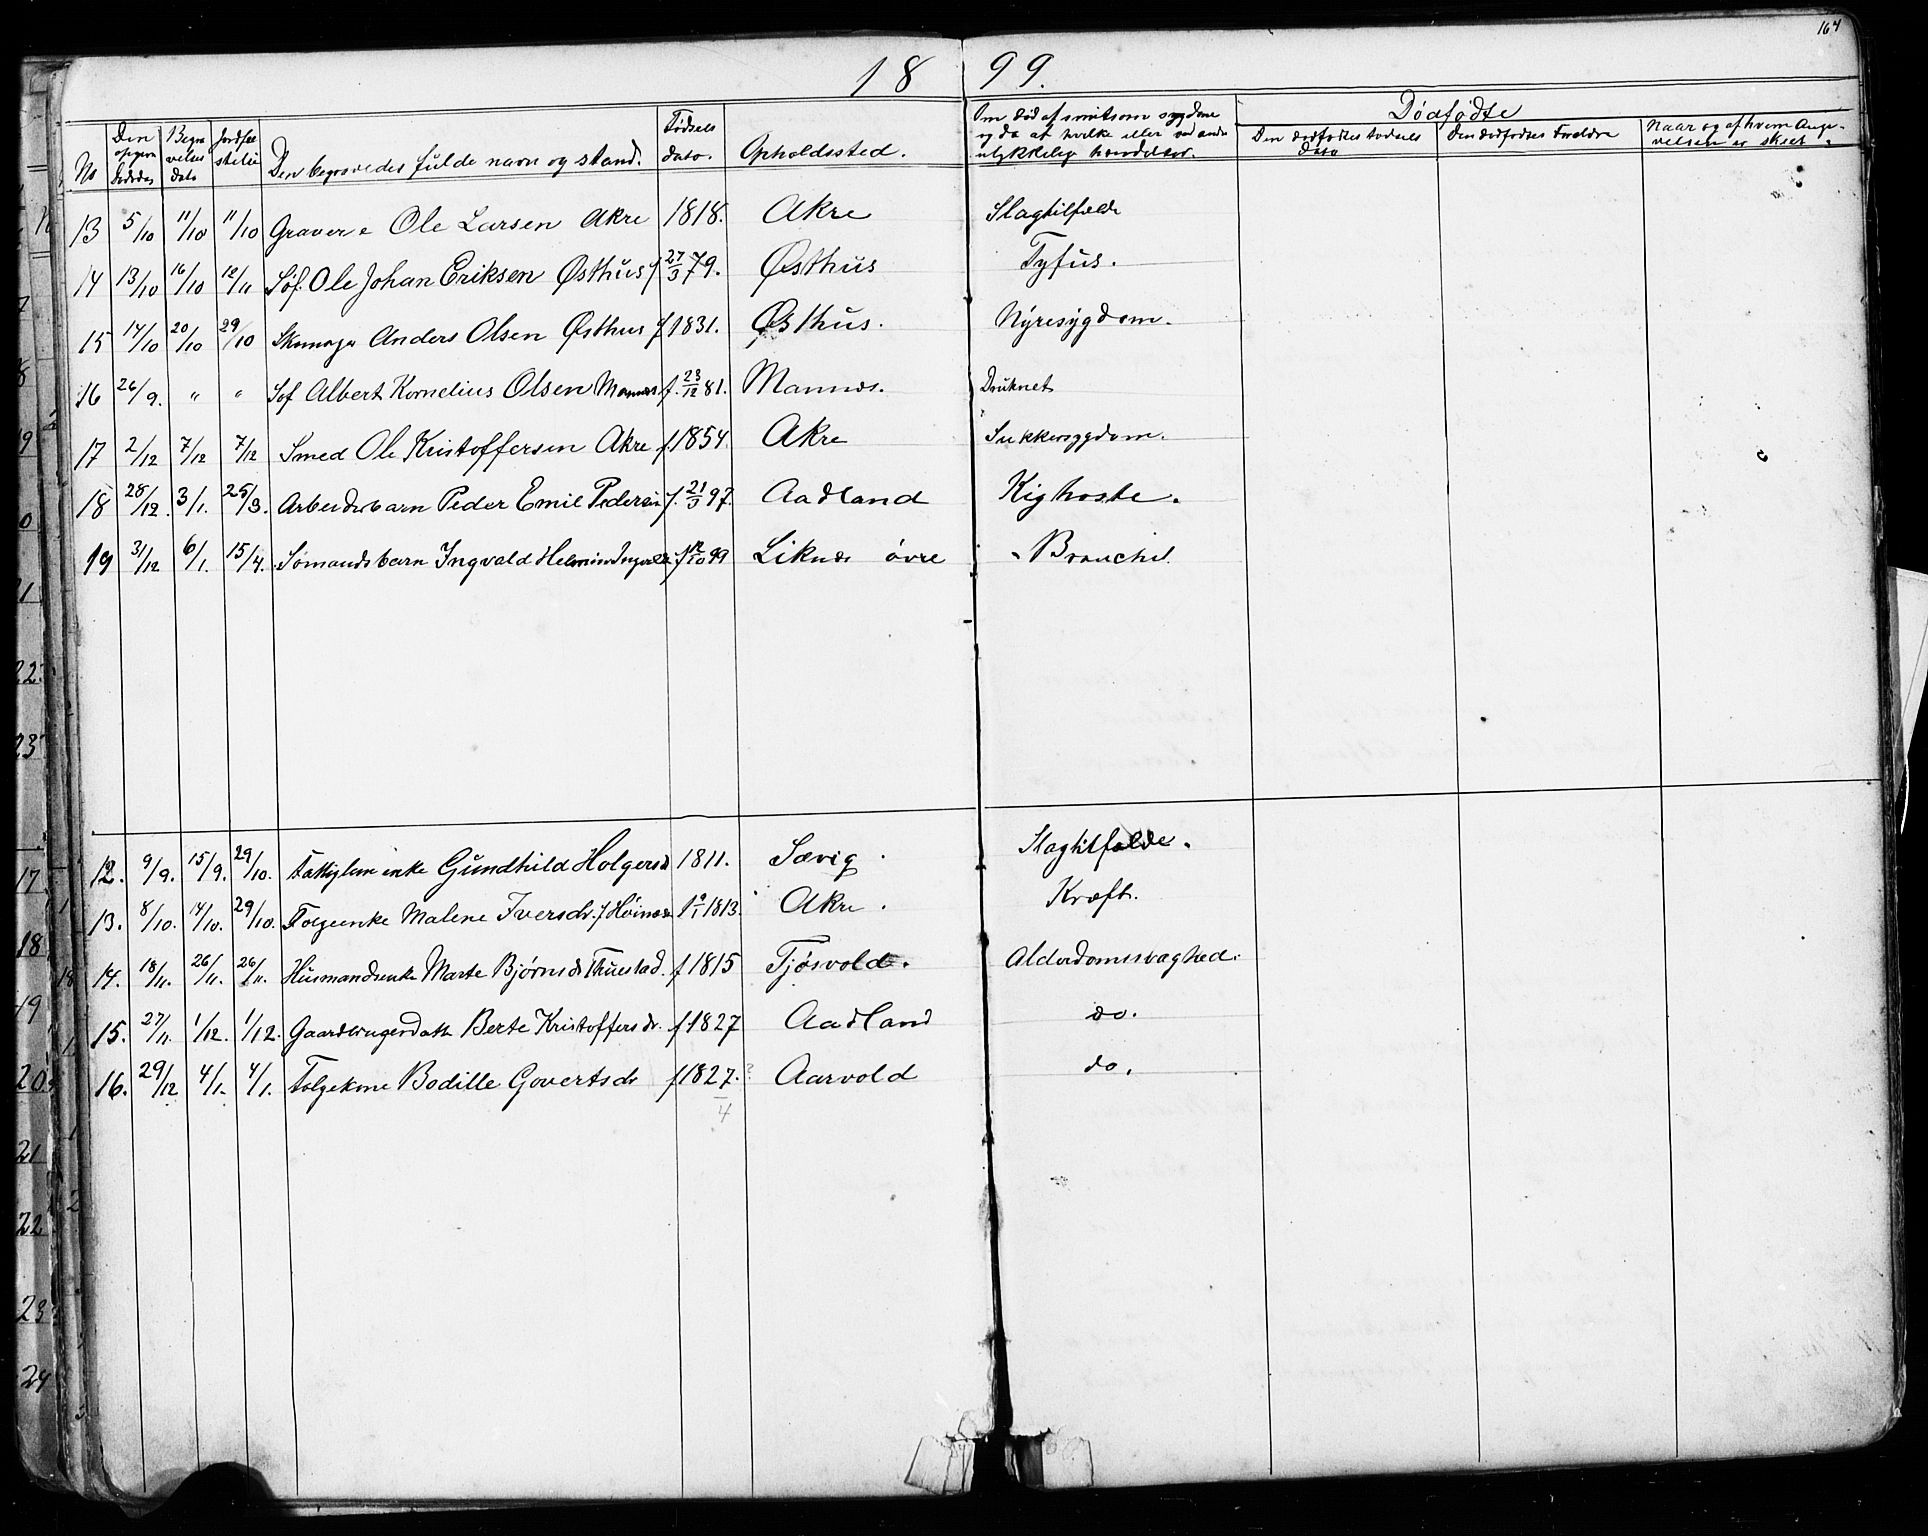 164
18 99.
No Den opgivne Dødsdag Begravelses dato Jordfæstelse Den begravedes fulde navn og stand. Fødsels dato. Opholdssted. Om død af smitsom sygdom og da af hvilke eller ved anden ulykkelig hændelse. Dødfødte
Den dødfødtes Fødsels Dato Den dødfødtes Forældre Naar og af hvem Angivelsen er skeet.
13 5/10 11/10 11/10 Graver Ole Larsen Akre 1818. Akre Slagtilfælde
14 13/10 16/10 12/11 Søf. Ole Johan Eriksen Østhus f 27/3 79. Østhus Tyfus.
15 14/10 20/10 29/10 Skomager Anders Olsen Østhus f 1831. Østhus. Nyresygdom.
16 26/9. " " Søf Albert Kornelius Olsen Mannes f. 23/12 81. Mannes. Druknet
17 2/12 7/12 7/12 Smed Ole Kristoffersen Akre f. 1854. Akre Sukkersygdom.
18 28/12. 3/1. 25/3. Arbeidsbarn Peder Emil Pedersen f. 21/3 97. Aadland Kighoste.
19 31/12 6/1. 15/4. Sømandsbarn Ingvald Helmin f 12/10 99 Liknes øvre Bronchit.
12. 9/9. 15/9. 29/10. Fattiglem enke Gundhild Holgersd 1811. Sævig Slagtilfælde.
13. 8/10. 14/10. 29/10. Folgeenke Malene Iversdr. f Høines 1813. Akre. Kræft.
14. 18/11. 26/11. 26/11. Husmandsenke Marte Bjørnsd Thuestad. f 1815 Tjøsvold. Alderdomssvaghed.
15. 27/11. 1/12. 1/12. Gaardbrugerdatt Berte Kristoffersdr. f 1827 Aadland do.
16. 29/12 4/1. 4/1. Folgekone Bodille Govertsdr f 1827. ? Aarvold do.
4